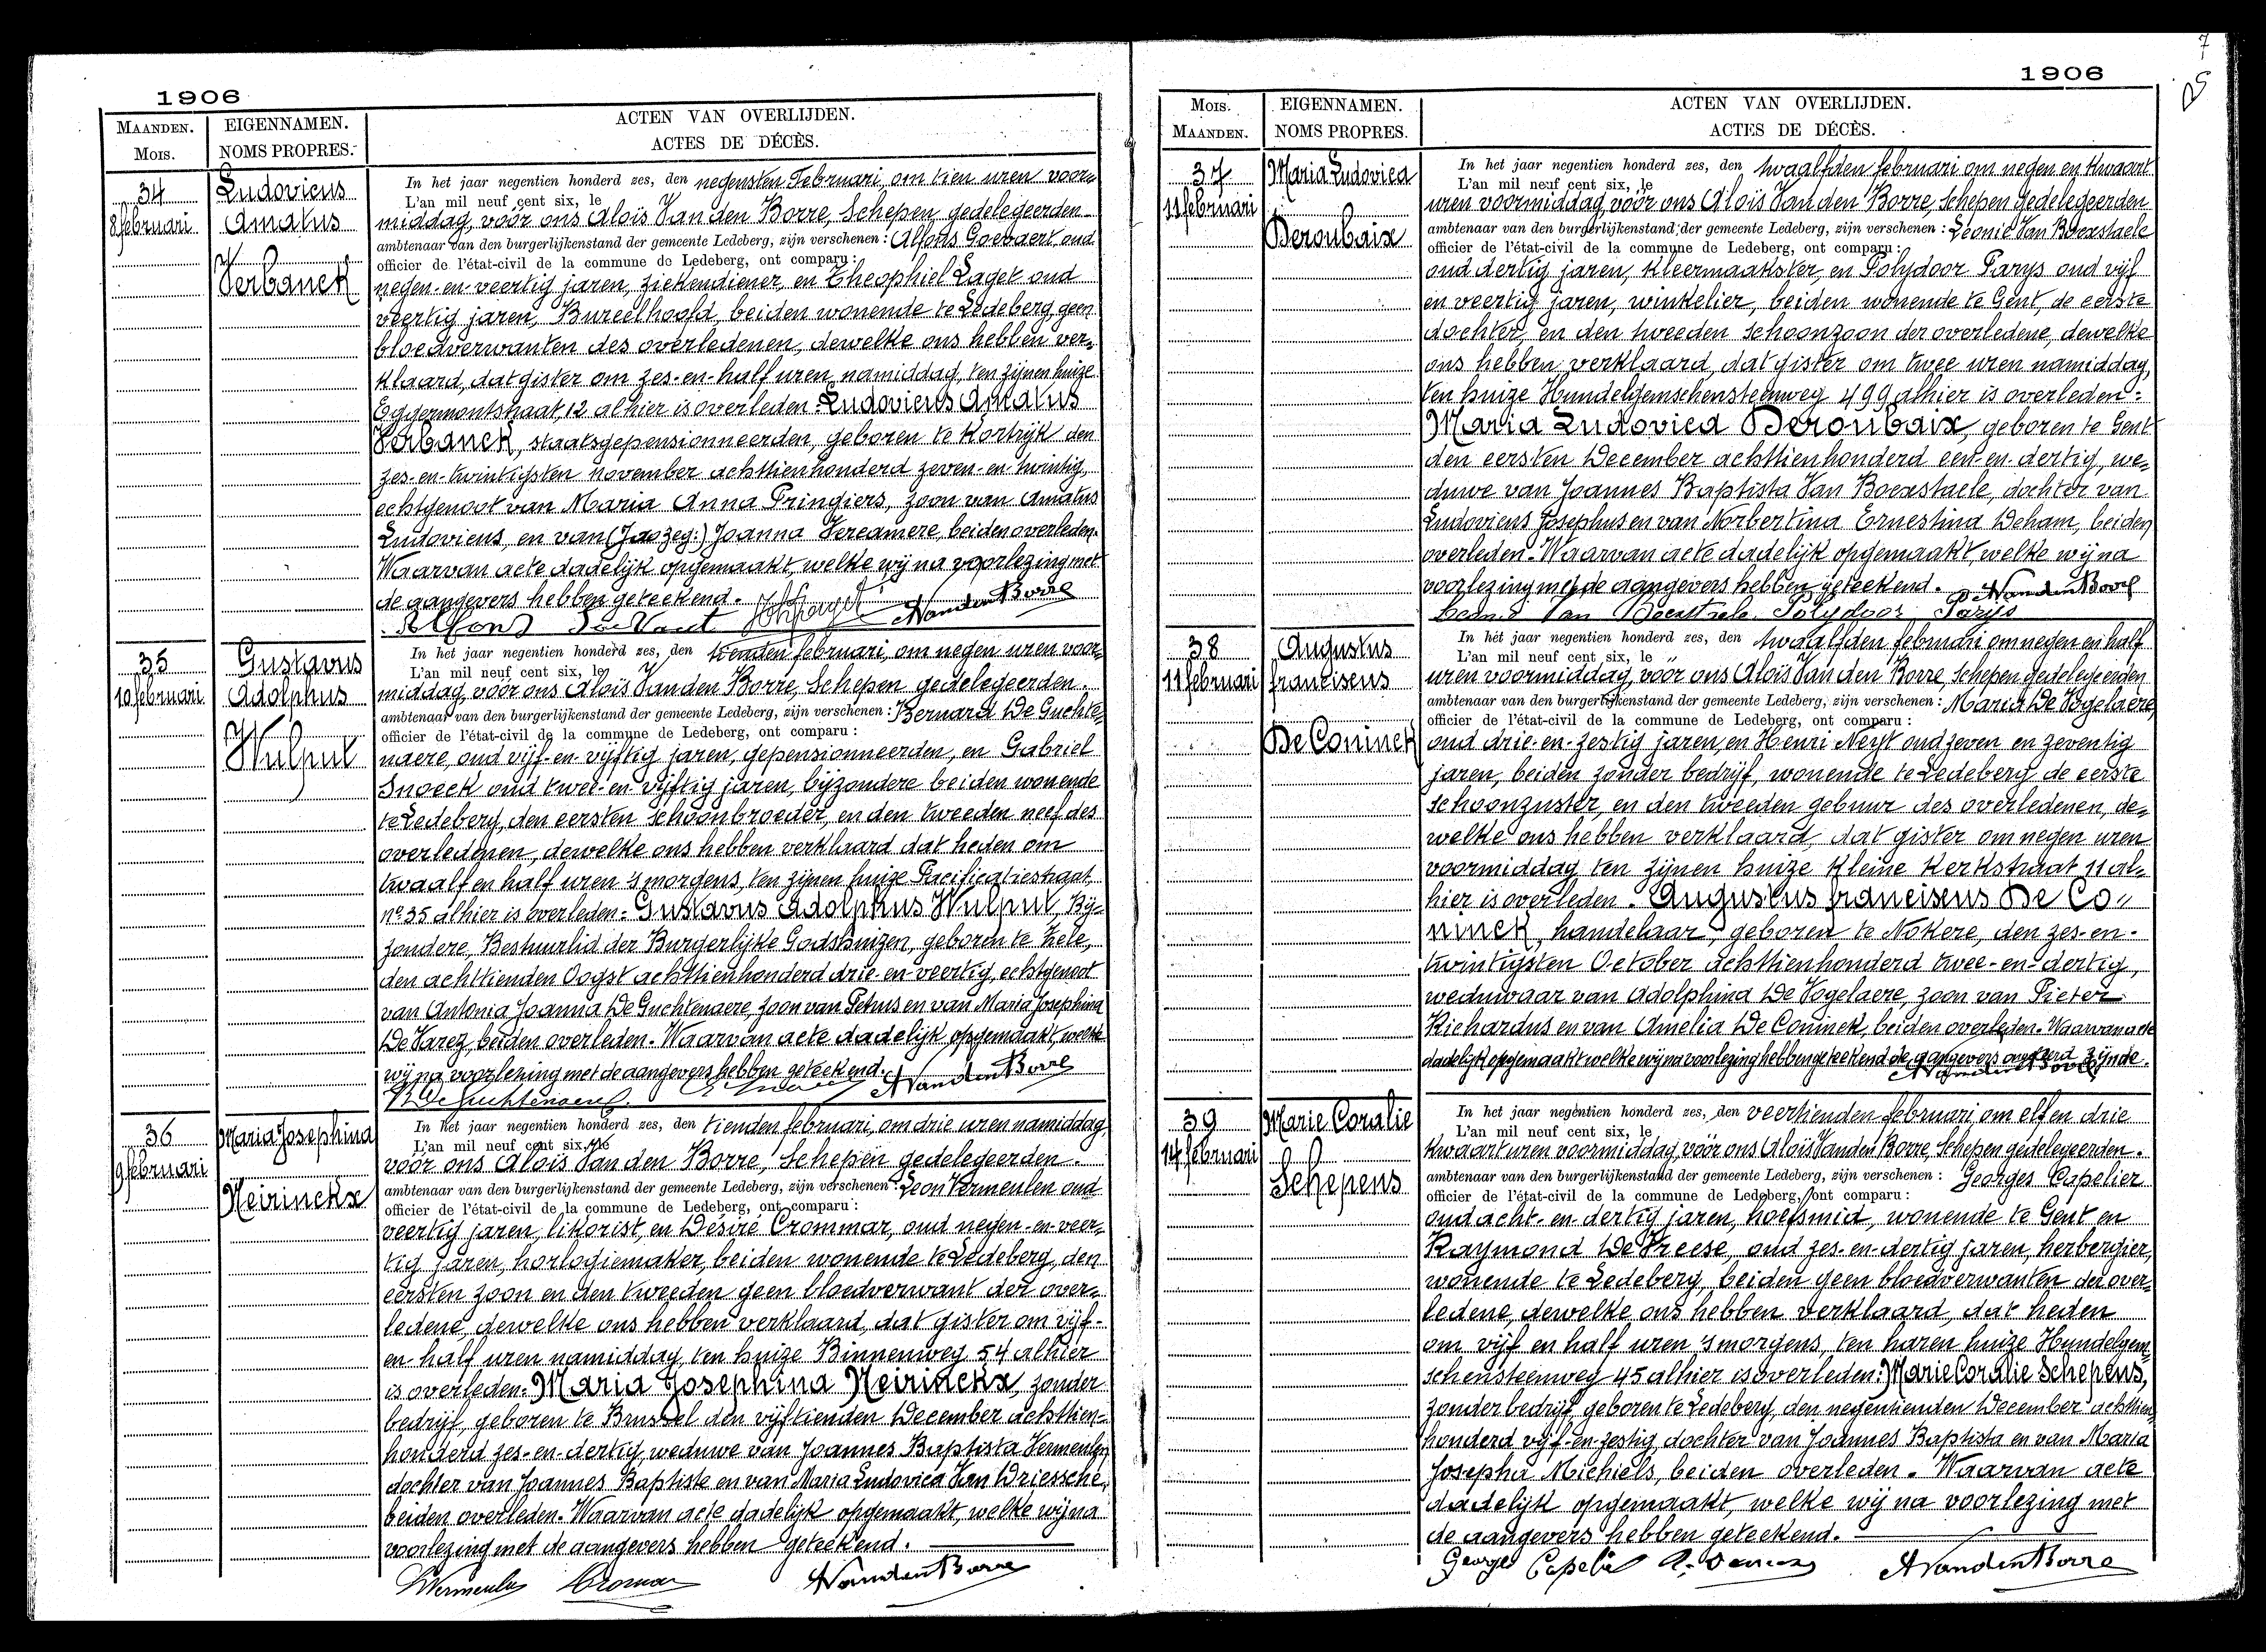 1906
MAANDEN.
Mois.
EIGENNAMEN.
NOMS PROPRES.
ACTEN VAN OVERLIJDEN.
ACTES DE DÉCÈS.
34
8 februari
Ludovicus
Amatus
Verbanck
In het jaar negentien honderd zes, den negensten Februari, om tien uren voor-
L'an mil neuf cent six, le
middag, vóór ons Aloïs Van den Borre, Schepen gedelegeerden
ambtenaar van den burgerlijkenstand der gemeente Ledeberg, zijn verschenen: Alfons Goevaert, oud
officier de l'état-civil de la commune de Ledeberg, ont comparu:
negen-en-veertig jaren, ziekendiener, en Theophiel Laget oud
veertig jaren, Bureelhoofd, beiden wonende te Ledeberg, geen
bloedverwanten des overledenen, dewelke ons hebben ver-
klaard, dat gister om zes-en-half uren namiddag, ten zijnen huize
Eggermontstraat, 12 alhier is overleden: Ludovicus Amatus
Verbanck, staatsgepensionneerden, geboren te Kortrijk den
zes-en-twintigsten november achttienhonderd zeven-en-twintig,
echtgenoot van Maria Anna Pringiers, zoon van Amatus
Ludovicus, en van (Ja zeg:) Joanna Vercamere, beiden overleden.
Waarvan acte dadelijk opgemaakt, welke wij na voorlezing met
de aangevers hebben geteekend.
Alfons A Vanden Borre
35
10 februari
Gustavus
Adolphus
Wulput
In het jaar negentien honderd zes, den tienden februari, om negen uren voor-
L'an mil neuf cent six, le
middag, vóór ons Aloïs Van den Borre, Schepen gedelegeerden
ambtenaar van den burgerlijkenstand der gemeente Ledeberg, zijn verschenen: Bernard De Guchte-
officier de l'état-civil de la commune de Ledeberg, ont comparu:
naere, oud vijf-en-vijftig jaren, gepensionneerden, en Gabriel
Snoeck oud twee-en-vijftig jaren, bijzondere beiden wonende
te Ledeberg, den eersten schoonbroeder, en den tweeden neef des
overledenen, dewelke ons hebben verklaard dat heden om
twaalf en half uren 's morgens, ten zijnen huize Pacificatiestraat,
nº 35 alhier is overleden: Gustavus Adolphus Wulput, Bij-
zondere, Bestuurlid der Burgerlijke Godshuizen, geboren te Zele,
den achttienden Oogst achttienhonderd drie-en-veertig, echtgenoot
van Antonia Joanna De Guchtenaere, zoon van Petrus en van Maria Josephina
De Varez, beiden overleden. Waarvan acte dadelijk opgemaakt, welke
wij na voorlezing met de aangevers hebben geteekend.
B De Guchtenaere G. Snoeck A Vanden Borre
36
9 februari
Maria Josephina
Neirinckx
In het jaar negentien honderd zes, den tienden februari, om drie uren namiddag
L'an mil neuf cent six, le
vóór ons Aloïs Van den Borre, Schepen gedelegeerden
ambtenaar van den burgerlijkenstand der gemeente Ledeberg, zijn verschenen: Leon Vermeulen oud
officier de l'état-civil de la commune de Ledeberg, ont comparu:
veertig jaren, likorist, en Désiré Crommar, oud negen-en-veer-
tig jaren, horlogiemaker, beiden wonende te Ledeberg, den
eersten zoon en den tweeden geen bloedverwant der over-
ledene, dewelke ons hebben verklaard, dat gister om vijf-
en-half uren namiddag, ten huize Binnenweg 54 alhier
is overleden: Maria Josephina Neirinckx, zonder
bedrijf, geboren te Brussel den vijftienden December achttien-
honderd zes-en-dertig, weduwe van Joannes Baptista Vermeulen
dochter van Joannes Baptiste en van Maria Ludovica Van Driessche,
beiden overleden. Waarvan acte dadelijk opgemaakt, welke wij na
voorlezing met de aangevers hebben geteekend.
L Vermeulen Cromar A Vanden Borre
7
1906
Mois.
MAANDEN.
EIGENNAMEN.
NOMS PROPRES.
ACTEN VAN OVERLIJDEN.
ACTES DE DÉCÈS.
37
11 februari
Maria Ludovica
Deroubaix
In het jaar negentien honderd zes, den twaalfden februari om negen en kwaart
L'an mil neuf cent six, le
uren voormiddag, vóór ons Aloïs Van den Borre, Schepen gedelegeerden
ambtenaar van den burgerlijkenstand der gemeente Ledeberg, zijn verschenen: Leonie Van Boexstaele
officier de l'état-civil de la commune de Ledeberg, ont comparu:
oud dertig jaren, kleermaakster, en Polydoor Parys oud vijf
en veertig jaren, winkelier, beiden wonende te Gent, de eerste
dochter, en den tweeden schoonzoon der overledene, dewelke
ons hebben verklaard, dat gister om twee uren namiddag,
ten huize Hundelgemschensteenweg 499 alhier is overleden:
Maria Ludovica Deroubaix, geboren te Gent
den eersten December achttienhonderd een-en-dertig, we-
duwe van Joannes Baptista Van Boexstaele, dochter van
Ludovicus Josephus en van Norbertina Ernestina Deham, beiden
overleden. Waarvan acte dadelijk opgemaakt, welke wij na
voorlezing met de aangevers hebben geteekend. A Vanden Borre
Leonie Van Boexstaele Polydoor Parys
38
11 februari
Augustus
franciscus
De Coninck
In het jaar negentien honderd zes, den twaalfden februari om negen en half
L'an mil neuf cent six, le "
uren voormiddag, vóór ons Aloïs Van den Borre, Schepen gedelegeerden
ambtenaar van den burgerlijkenstand der gemeente Ledeberg, zijn verschenen: Maria De Vogelaere,
officier de l'état-civil de la commune de Ledeberg, ont comparu:
oud drie-en-zestig jaren, en Henri Neyt oud zeven en zeventig
jaren, beiden zonder bedrijf, wonende te Ledeberg de eerste
schoonzuster, en den tweeden gebuur des overledenen, de-
welke ons hebben verklaard, dat gister om negen uren
voormiddag ten zijnen huize Kleine Kerkstraat 11 al-
hier is overleden. Augustus franciscus De Co"
ninck, handelaar, geboren te Nokere, den zes-en-
twintigsten October achttienhonderd twee-en-dertig,
weduwaar van Adolphina De Vogelaere, zoon van Pieter
Richardus en van Amelia De Coninck, beiden overleden. Waarvan acte
dadelijk opgemaakt welke wij na voorlezing hebben geteekend de aangevers ongeleerd zijnde.
A Vanden Borre
39
14 februari
Marie Coralie
Schepens
In het jaar negentien honderd zes, den veertienden februari, om elf en drie
L'an mil neuf cent six, le
kwaart uren voormiddag, vóór ons Aloïs Van den Borre, Schepen gedelegeerden
ambtenaar van den burgerlijkenstand der gemeente Ledeberg, zijn verschenen: Georges Capelier
officier de l'état-civil de la commune de Ledeberg, ont comparu:
oud acht-en-dertig jaren, hoefsmid, wonende te Gent en
Raymond De Vreese, oud zes-en-dertig jaren, herbergier,
wonende te Ledeberg, beiden geen bloedverwanten der over-
ledene, dewelke ons hebben verklaard, dat heden
om vijf en half uren 's morgens, ten haren huize Hundelgem-
schensteenweg 45 alhier is overleden: Marie Coralie Schepens,
zonder bedrijf, geboren te Ledeberg, den negentienden December achttien-
honderd vijf-en-zestig, dochter van Joannes Baptista en van Maria
Josepha Michiels, beiden overleden. Waarvan acte
dadelijk opgemaakt, welke wij na voorlezing met
de aangevers hebben geteekend.
Georges Capelier A Vanden Borre